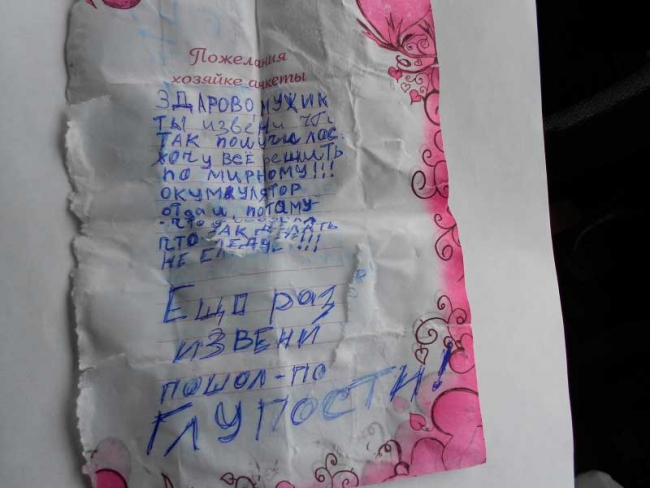 Пожелания
хозяйке анкеты
ЗДАРОВО МУЖИК
ТЫ извени что
ТАК получилас.
хочу всё решить
по мирному!!!
окумулятор
отдаи, потаму
что
ТАК ДЕЛАТЬ
НЕ
Ещо раз
извени
пошол-по
ГЛУПОСТИ!